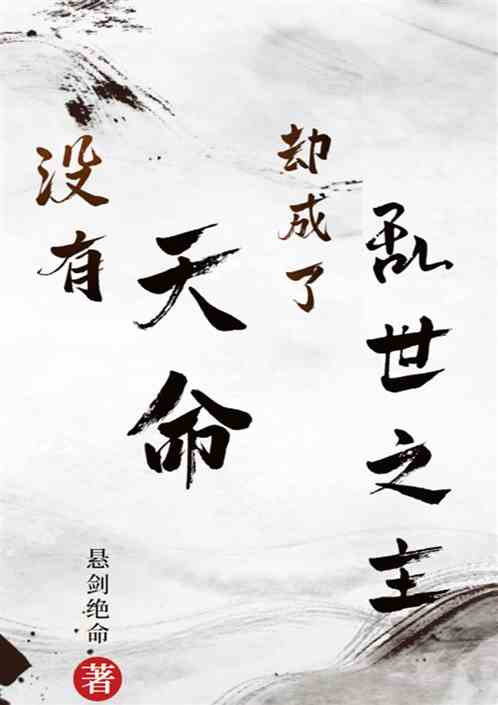 没有
天命
却成了
乱世之主
悬剑绝命
著